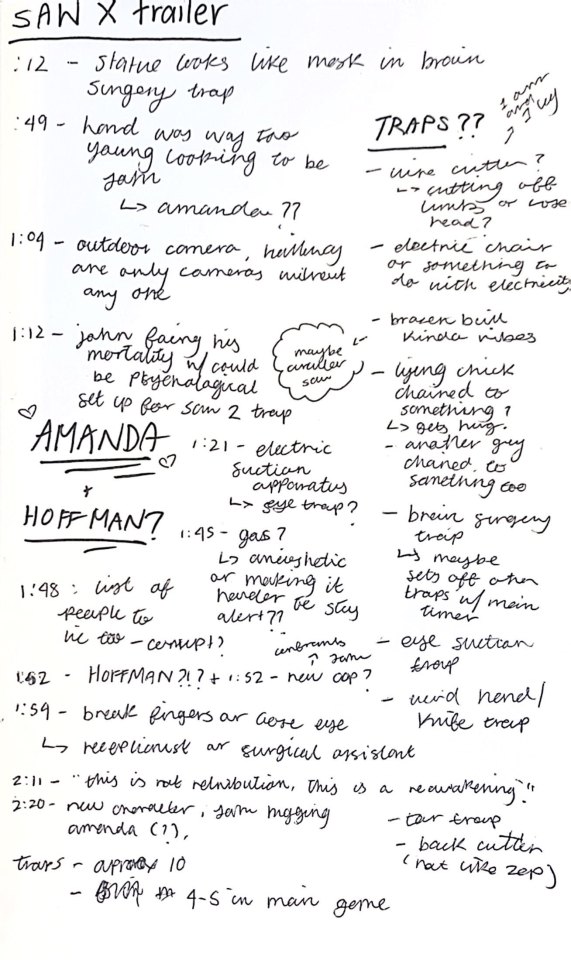 SAW X trailer
:12 - statue looks like mask in brain
surgery trap
:49 - hand was way too
young looking to be
jam
↳ amanda??
1:04 - outdoor camera,
are only cameras without
any one
1:12 - john facing his
mortality w/ could
be psychological
set up for saw 2 trap
maybe
circular
saw
AMANDA
+
HOFFMAN?
1:21 - electric
suction
apparatus
↳ eye trap?
1:45 - gas?
↳ anesthetic
or making it
harder to stay
alert??
1:48 : list of
people to
- corrupt?
1:52 - HOFFMAN?!? + 1:52 - new cop?
1:59 - break fingers or lose eye
↳ receptionist or surgical assistant
2:11 - "this is not retribution, this is a reawakening"
2:20 - new character, jam hugging
amanda (?),
traps - aprox 10
- 4-5 in main game
TRAPS??
1 arm
and
1 leg
?
- wire cutter?
↳ cutting off
limbs or lose
head?
- electric chair
or something to
do with electricity
- brazen bull
kinda vibes
- chick
chained to
something?
↳ gets hug.
- another guy
chained to
something too
- brain surgery
trap
↳ maybe
sets off other
traps w/ main
timer
- eye suction
trap
- hand/
knife trap
- trap
- back cutter
(not like zep)